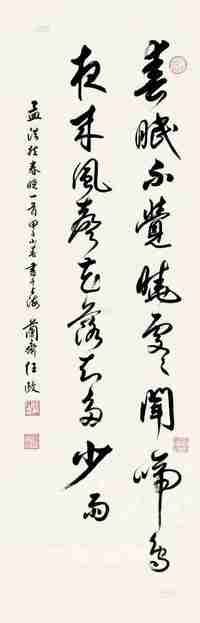 春眠不覺曉處〻聞啼鳥
夜来風聲花落知多少雨
孟浩然春曉一首甲子小春書于上海蘭齋任政